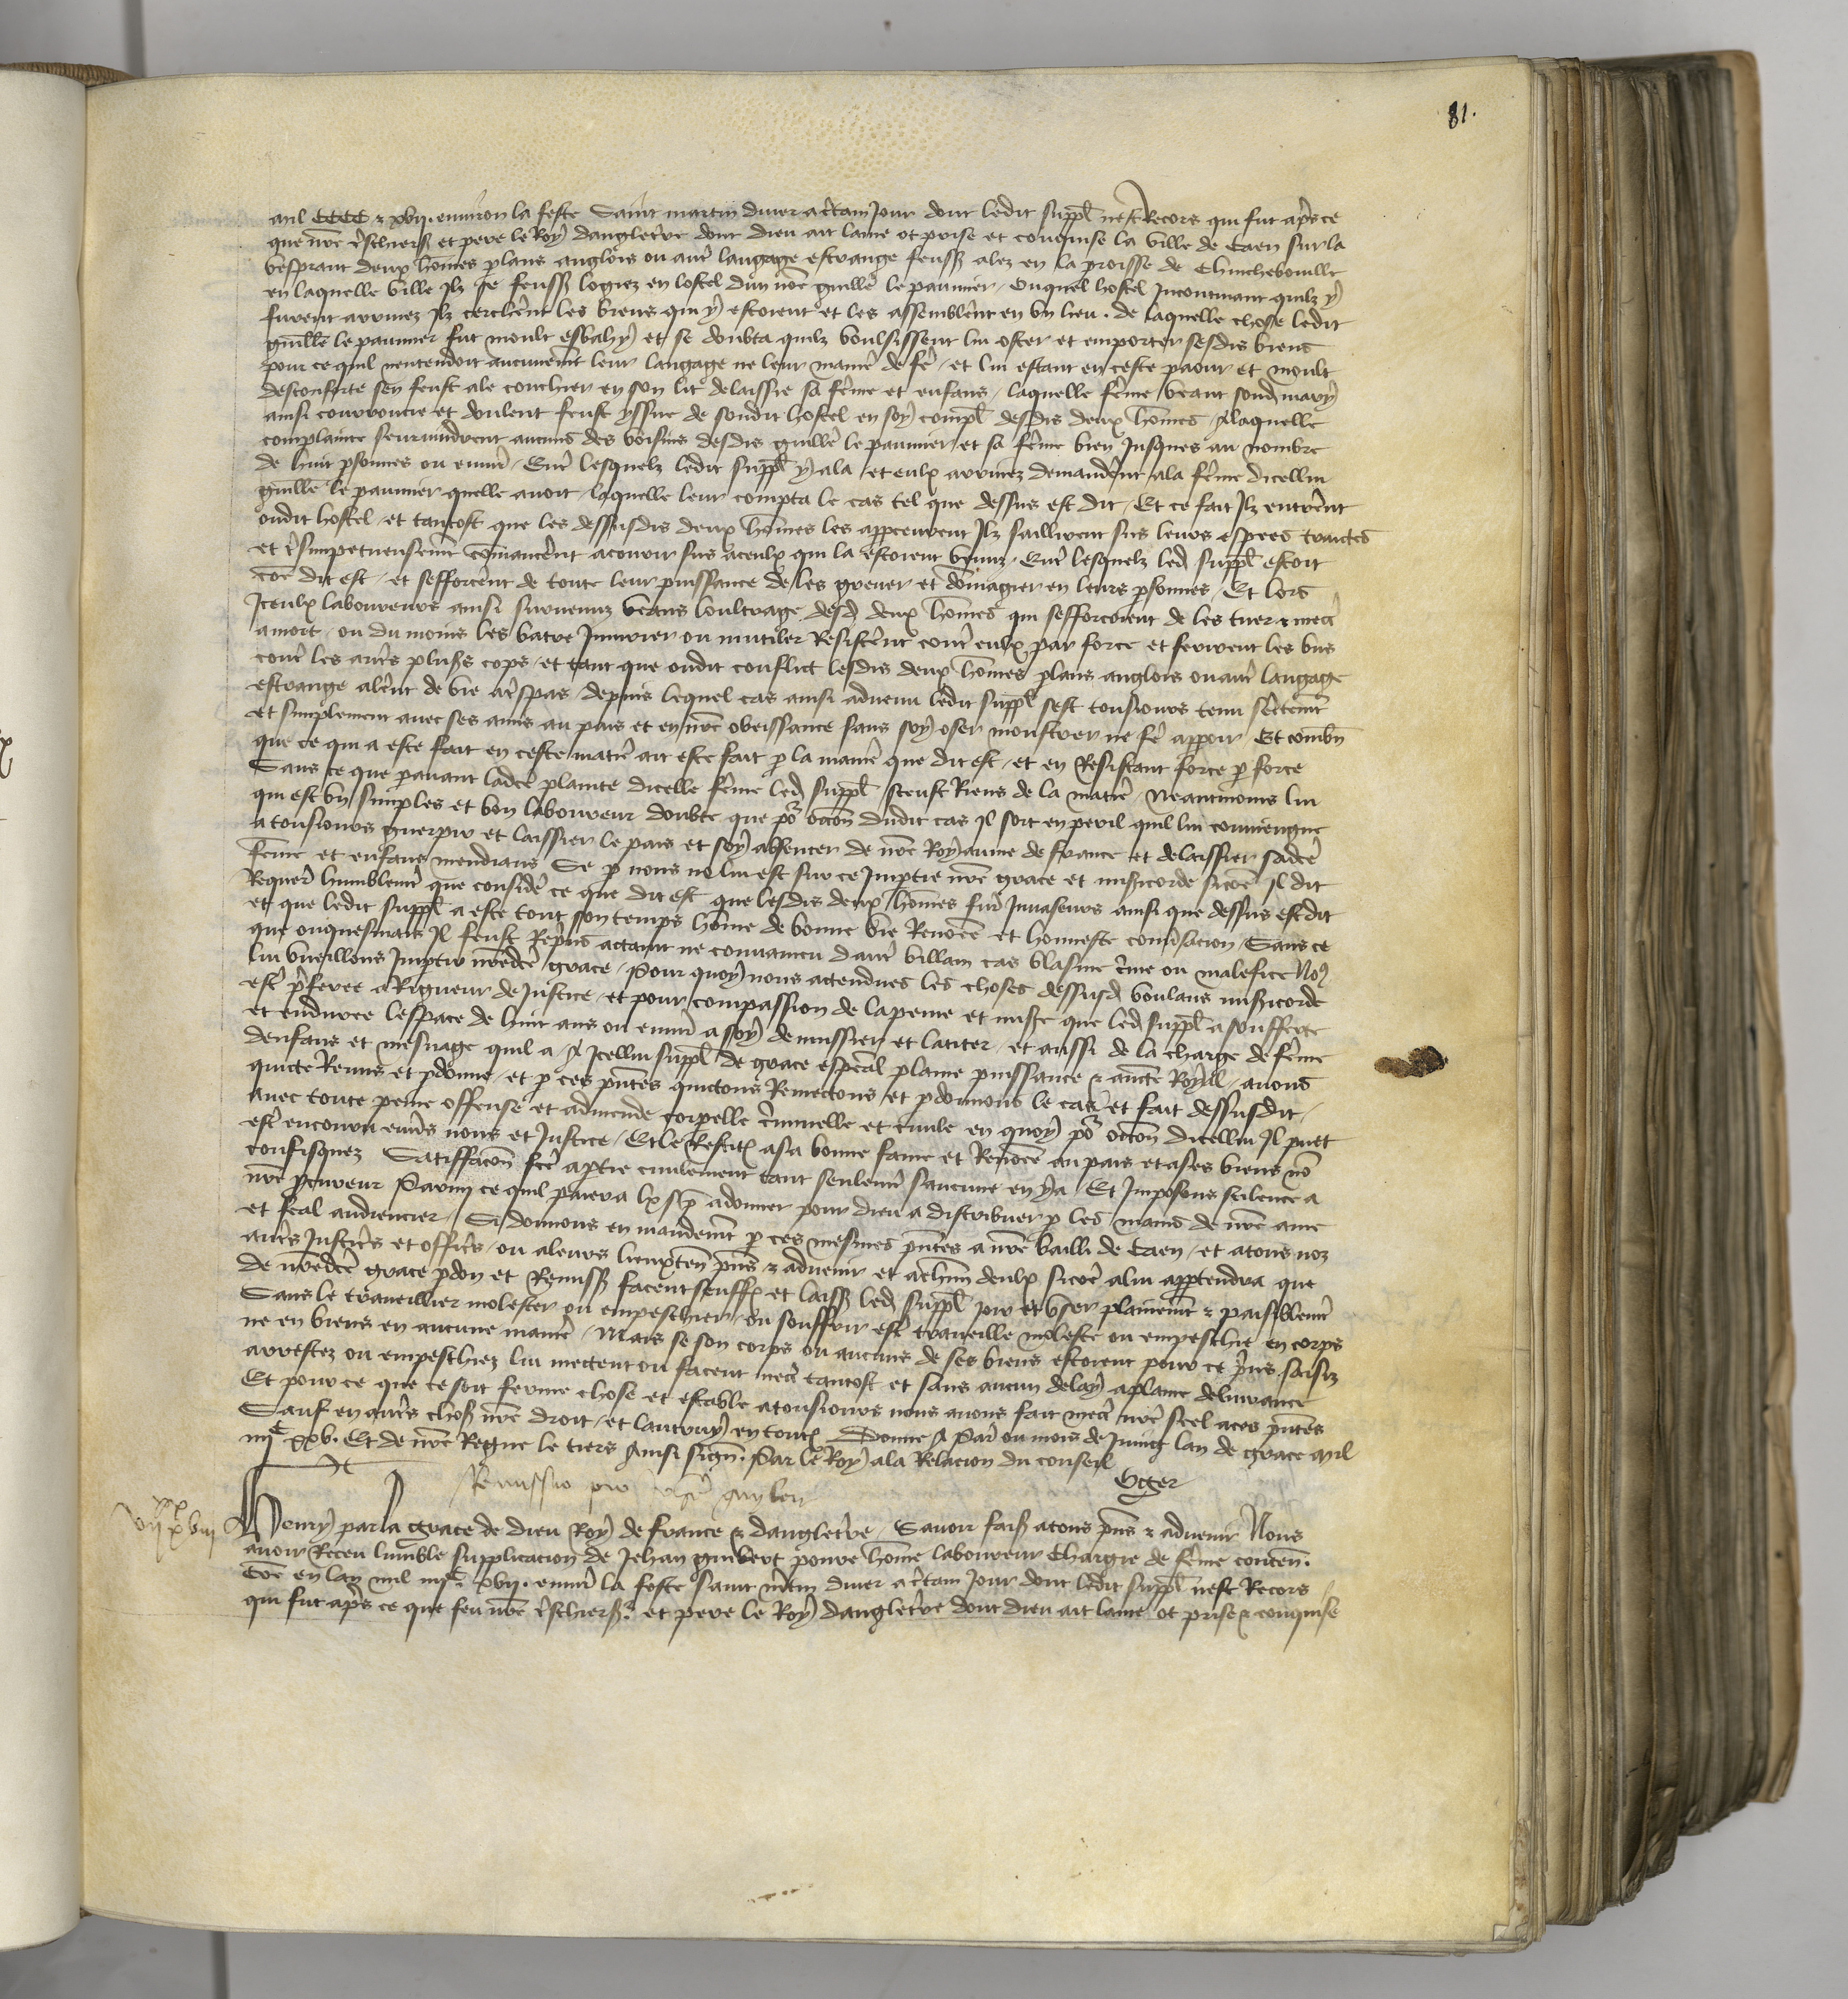 81.
mil CCCC & xvij. environ la feste Saint martin diver a c̄tain Jour dont ledit suppl̄ nest Recors qui fut ap̄s ce
que nr̄e t̄schierß et pere le Roy dangleterre dont dieu ait lame ot prise et conquise la ville de Caen sur la
vesprant deux hōmes p̄lans anglois ou aut̄ langage estrange feussß alez en la p̄roisse de
en laquelle ville Ilz se feussß logiez en lostel dun nōe guillē le paumier / Ouquel hostel Incontinant quilz y
furent arrivez Ilz cerchēt les biens qui y estoient et les assemblēt en un lieu . de laquelle chose ledit
guillē le paumier fut moult esbahy et se doubta quilz voulsissent lui oster et emporter sesdis biens
pour ce quil nentendoit aucunemt̄ leur langage ne leur manie de fē / et lui estant en ceste paour et moult
desconforte sen feust ale couchier en son lit delaissie sa fēme et enfans / laquelle fēme veant sond mary
ainsi courroucie et doulent feust yssue de sondit hostel en soy compl̄ desdis deux hōmes / A laquelle
complainte seurvindrent aucuns des voisins desdis guillē le paumier et sa fēme bien Jusques au nombre
de huit p̄sonnes ou envirō / Ent̄ lesquelz ledit suppl̄ y ala et eulx arrivez demandēt a la fēme dicellui
guillē le paumier quelle avoit / laquelle leur compta le cas tel que dessus est dit / Et ce fait Ilz entrēt
oudit hostel / et tantost que les dessusdis deux hōmes les app̄ceurent Ilz saillirent sus leurs espees traictes
et t̄simpetueusemt̄ cōmancēt a courir sus a ceulx qui la estoient venuz / Ent̄ lesquelz led suppl̄ estoit
cōe dit est / et sefforcēt de toute leur puissance de les grever et dōmagier en leurs p̄sonnes / Et lors
Iceulx laboureurs ainsi survenuz veans loultrage desd deux hōmes qui sefforcoient de les tuer & mect̄
a mort / ou du moins les batre Iniurier ou mutiler Resistēt cont̄ eulx par force et ferirent les uns
cont̄ les aut̄s pluß̄s cops / et tant que oudit conflict lesdis deux hōmes p̄lans anglois ou aut̄ langage
estrange alēt de vie a t̄spas / depuis lequel cas ainsi advenu ledit suppl̄ sest tousiours tenu
et simplement avec ses amis au pais et en nr̄e obeissance sans soy oser monstrer ne fē apparoir Et cōmbn̄
que ce qui a este fait en ceste matie ait este fait p̄ la manie que dit est / et en Resistant force p̄ force
Sans ce que p̄avant ladcē plainte dicelle fēme led suppl̄ sceust Riens de la matie / Neantmoins lui
qui est un simples et bon laboureur doubte que po᷑ occōn dudit cas Il soit en peril quil lui conviengne
a tousiours guerpir et laissier le pais et soy absenter de nr̄e Royaume de france et delaissier sadcē
fēme et enfans mendians Se p̄ nous ne lui est sur ce Imptie nr̄e grace et miß̄icorde sicōe Il dit
Requer̄ humblemt̄ que considē ce que dit est que lesdis deux hōmes fur̄ Invaseurs ainsi que dessus est dit
et que ledit suppl̄ a este tout son temps hōme de bonne vie Renōee et honneste conv̄sacion / Sans ce
que onquesmais Il feust Rep̄ns actaint ne convaincu daut̄ villain cas blasme c̄me ou malefice Noꝰ
lui vueillons Imptir nr̄edcē grace / Pour quoy nous actendues les choses dessusd voulans miß̄icorde
est̄ p̄feree a Rigueur de Justice / et pour compassion de la peine et que led suppl̄ a soufferte
et enduree lespace de huit ans ou envirō a soy demussier et latiter / et aussi de la charge de fēme
denfans et mesnage quil a / A Icellui suppl̄ de grace esp̄cal plaine puissance & aucte Royal / avons
quicte Remis et p̄donne / et p̄ ces p̄ntes quictons Remectons et p̄donnons le cas et fait dessusdit /
avec toute peine offense et admende corporelle c̄iminelle et civile en quoy po᷑ occōn dicellui Il puet
est̄ encouru env̄s nous et Justice / Et le Restitx̄ a sa bonne fame et Renōee au pais et a ses biens nō
confisquez Satisffacōn fc̄e a p̄tie civilement tant seulemt̄ saucune en y a / Et Imposons silence a
nr̄e p̄cureur Parmi ce quil paiera lx s̄ p̄ a donner pour dieu a distribuer p̄ les mains de nr̄e ame
et feal audiencier / Si donnons en mandemt̄ p̄ ces mesmes p̄ntes a nr̄e bailli de Caen / et a tous noz
aut̄s Justic̄s et offic̄s / ou a leurs lieuxten̄ p̄ns & advenir et a chūn deulx sicōe a lui app̄tendra que
de nr̄edcē grace p̄don et Remiss̄ facent seuffr̄ et laissß led suppl̄ joir et user plainemt̄ & paisiblemt̄
Sans le traveillier molester ou empeschier / ou souffrir est̄ traveillie moleste ou empeschie en corps
ne en biens en aucune manie / Mais se son corps ou aucuns de ses biens estoient pour ce p̄ns saisiz
arrestez ou empeschiez lui mectent ou facent mect̄ tantost et sans aucun delay a plaine delivrance
Et pour ce que ce soit ferme chose et estable a tousiours nous avons fait mect̄ nr̄e scel a ces p̄ntes
Sauf en aut̄s chosß nr̄e droit / et lautruy en toutx̄ Donne A Par̄ ou mois de Juing lan de grace mil
iiijᶜ xxv. Et de nr̄e Regne le tiers Ainsi sign̄. Par le Roy a la Relacion du conseil
Oger
Remissio pro
Henry par la grace de dieu Roy de france & dangleterre / Savoir faisß a tous p̄ns & advenir Nous
avoir Receu lumble supplicacion de Jehan guibert povre hōme laboureur Chargie de fēme conten̄.
Cōe en lan mil iiijᶜ xvij. envirō la feste saint m̄tin diver a c̄tain Jour dont ledit suppl̄ nest Recors
qui fut ap̄s ce que feu nr̄e t̄schierß̄ et pere le Roy dangleterre dont dieu ait lame / ot prise & conquise